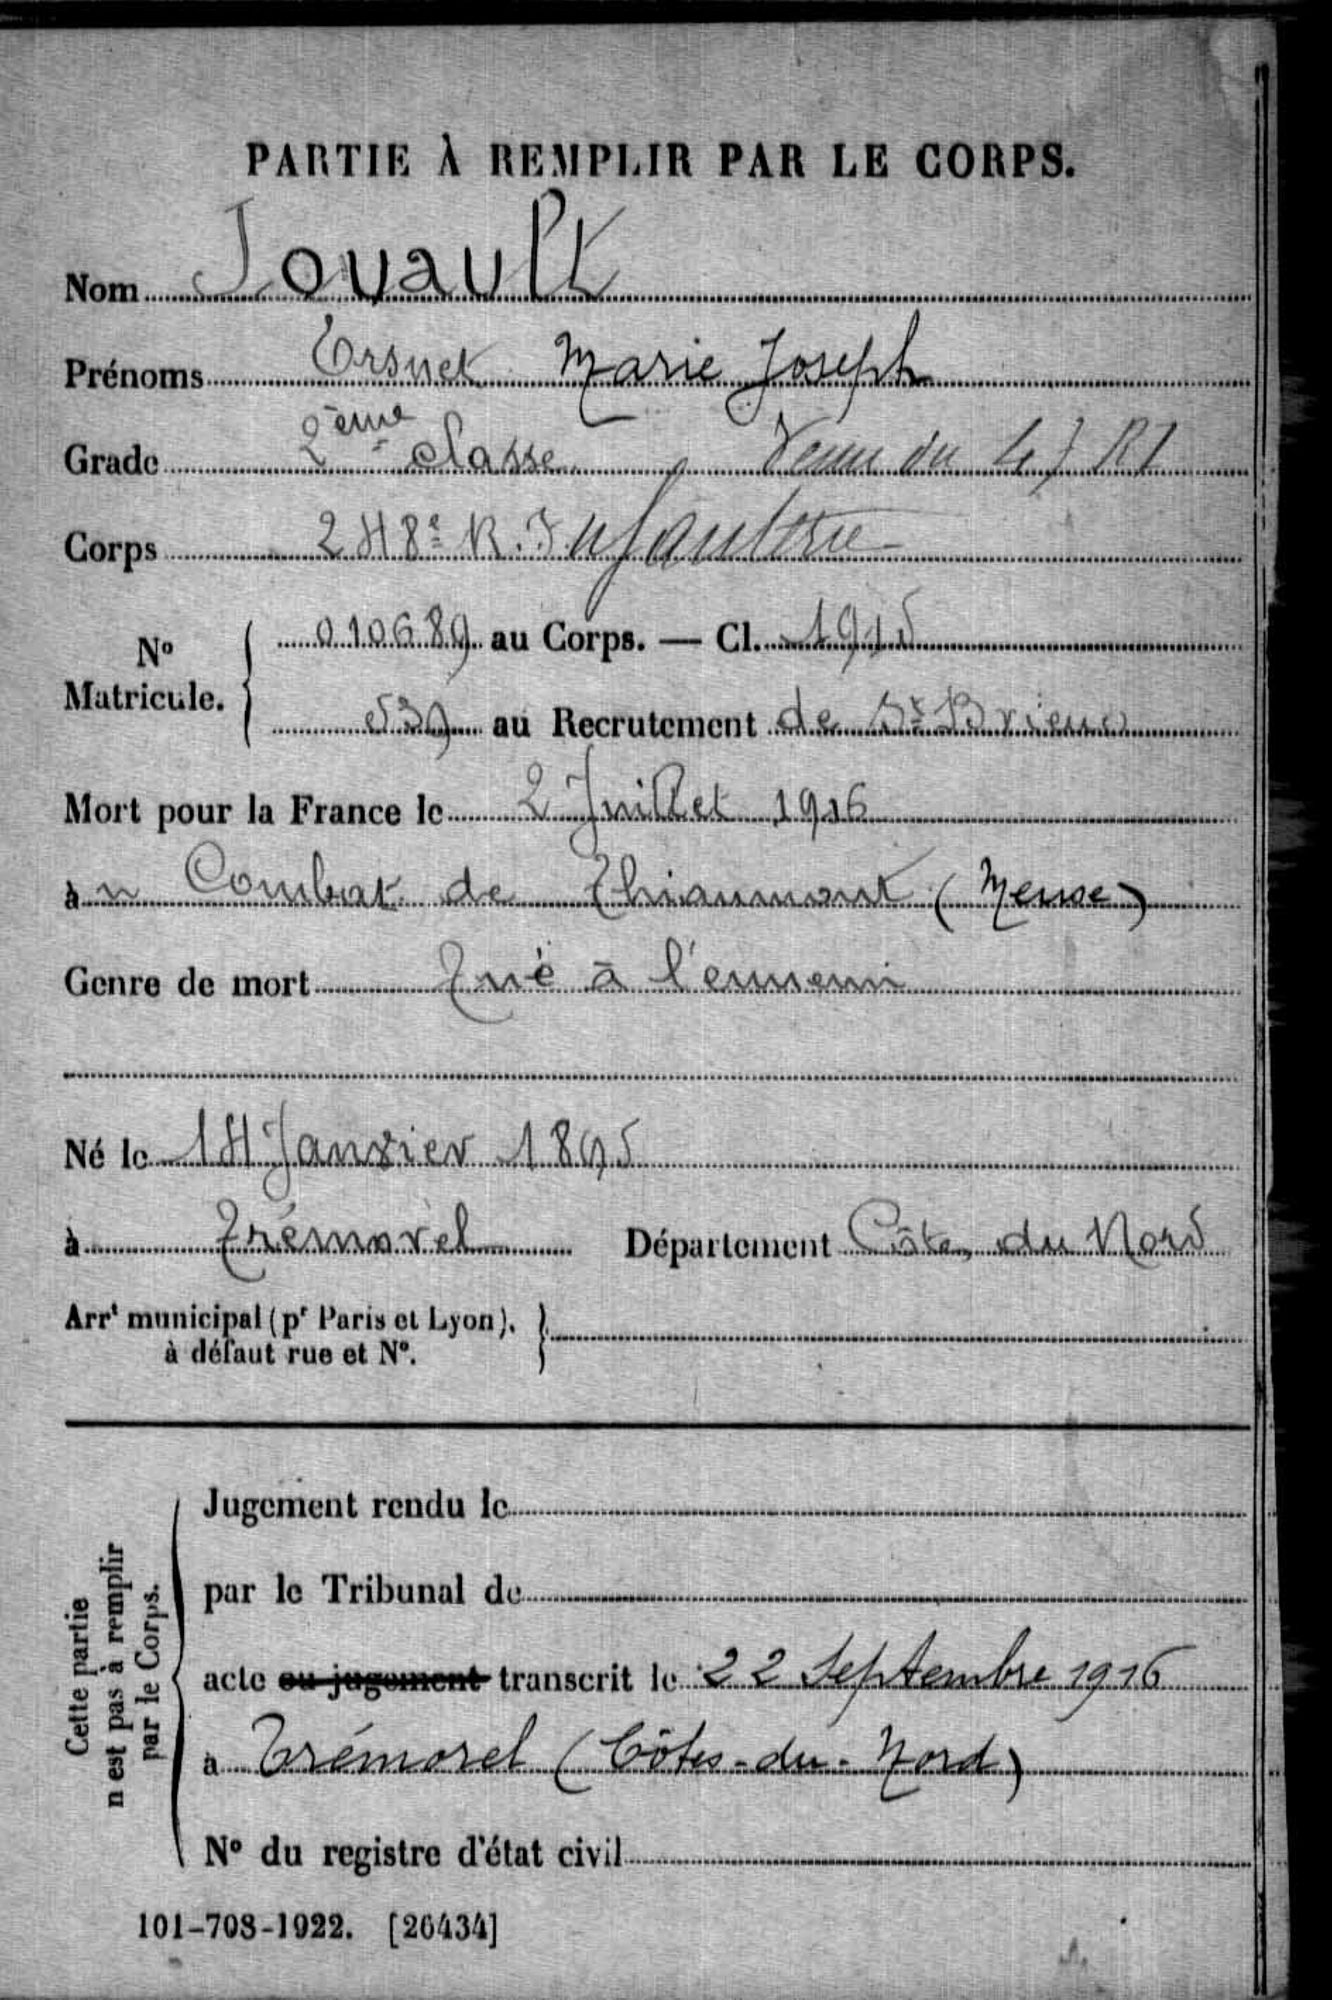 PARTIE À REMPLIR PAR LE CORPS.
Nom Jouault
Prénoms Ersnet Marie Joseph
Grade 2ème classe Venu du 47 RI
Corps 248e R. Infanterie
No Matricule. 010689 au Corps. — Cl. 1915
539 au Recrutement de St Brieuc
Mort pour la France le 2 Juillet 1916
à u Combat de Thiaumont (Meuse)
Genre de mort Tué à l'ennemi
Né le 14 Janvier 1895
à Trémorel Département Côtes du Nord
Arrt municipal (pr Paris et Lyon),
à défaut rue et No.
Cette partie
n est pas à remplir
par le Corps.
Jugement rendu le
par le Tribunal de
acte ou jugement transcrit le 22 Septembre 1916
à Trémorel (Côtes-du-Nord)
No du registre d'état civil
101-708-1922. [26434]